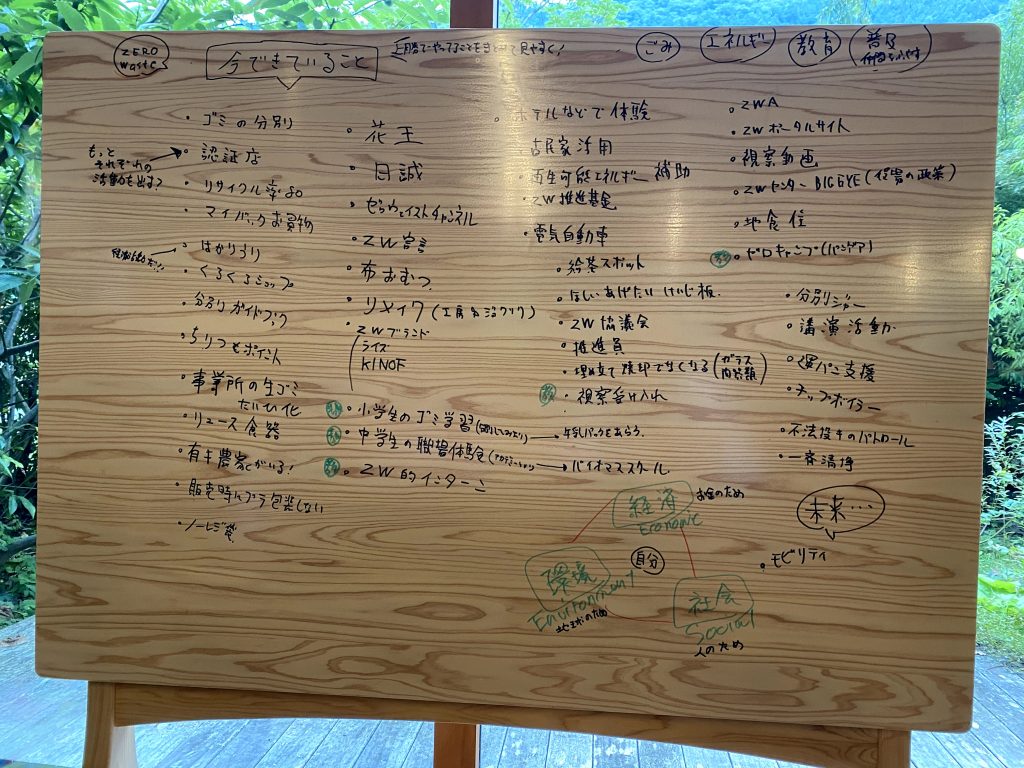 ZERO waste
今できていること
上勝でやってることをまとめて見やすく!
ごみ
エネルギー
教育
普及
仲間をふやす
・ゴミの分別
・認証店
もっと
それぞれの
活動を出す?
・リサイクル率80
・マイバックお買物
・はかりうり
・くるくるショップ
・分別ガイドブック
・ちりつもポイント
・事業所の生ゴミ
たいひ化
・リユース食器
・有キ農家がいる!
・販売時にプラ包装しない
・ノーレジ袋
・花王
・日誠
・ゼロウェイストチャンネル
・ZW宣言
・布おむつ
・リメイク(工房&
・ZWブランド
ライズ
KINOF
・小学生のゴミ学習
→牛乳パックをあらう。
・中学生の職場体験
→バイオマススクール
・ZW的インターン
・ホテルなどで体験
古民家活用
・再生可能エネルギー補助
・ZW推進基金
・電気自動車
・給茶スポット
・ほしいあげたいけいじ板
・ZW協議会
・推進員
・埋め立て焼却でなくなる(ガラス
・視察受け入れ
・ZWA
・ZWポータルサイト
・視察動画
・ZWセンター BIG EYE(
・地食住
・ゼロキャンプ(パンゲア)
・分別ジャー
・講演活動
・支援
・チップボイラー
・不法投キのパトロール
・一斉清掃
未来…
・モビリティ
経済
Economic
お金のため
自分
環境
Environment
地球のため
社会
Social
人のため